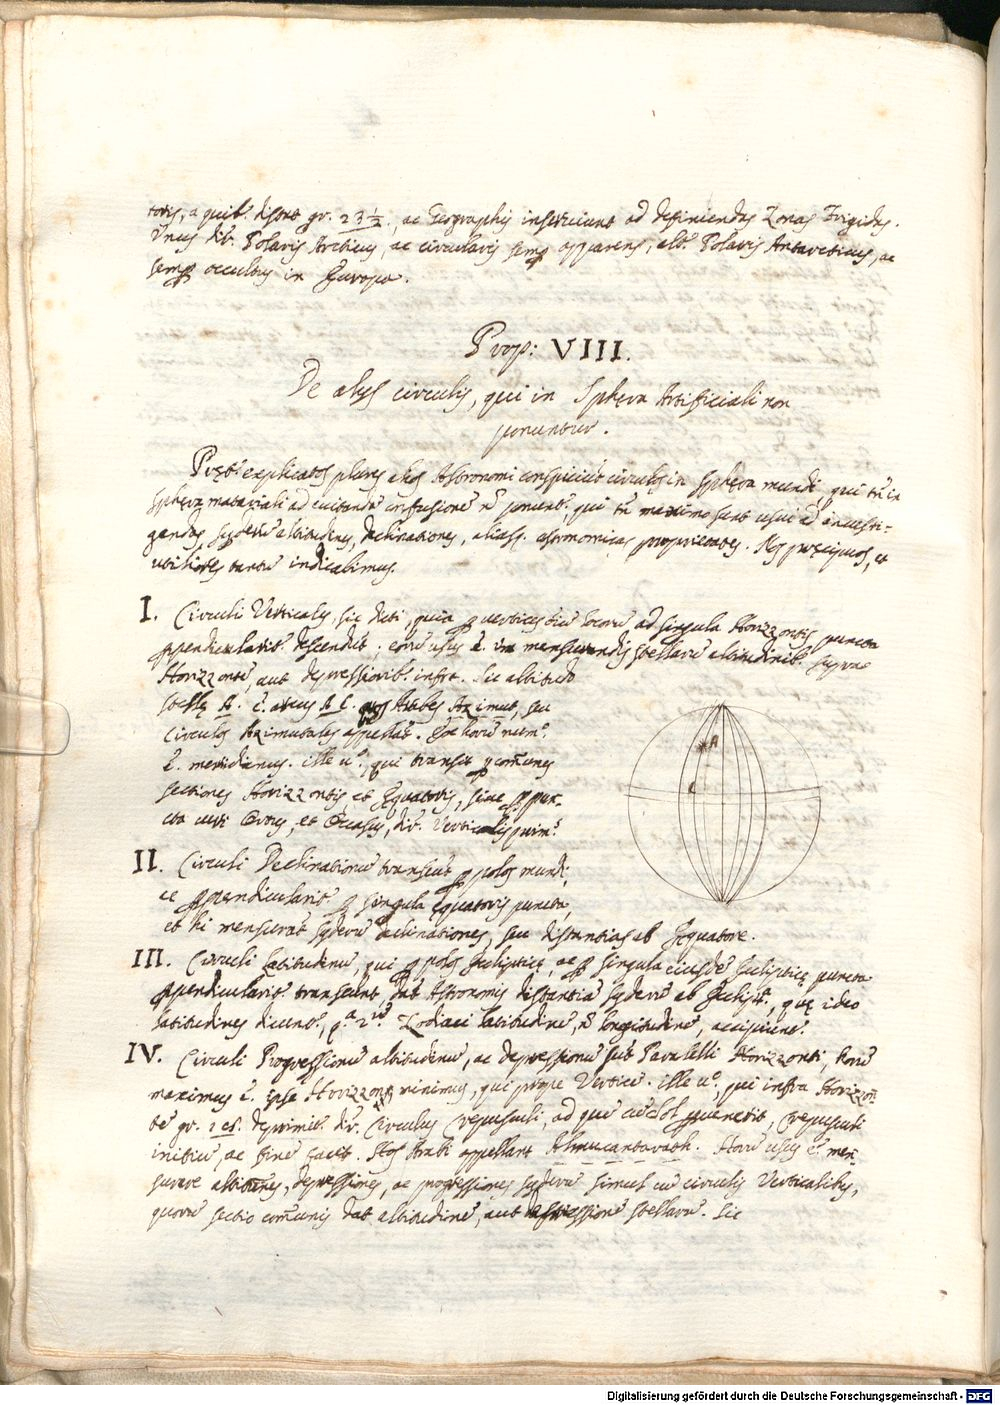 toris, a quib. distat gr. 23 1/2., ac Geographis inserviunt ad definiendas Zonas Frigidas.
Unus dr. Polaris Arcticus, ac circularis semp apparens, alt. Polaris Antarcticus, ac
semp occultus in Europa.
Prop: VIII.
De alijs circulis, qui in Sphęra Artificiali non
ponuntur.
Pręt. explicatos plures alios Astronomi conspiciut circulos in Sphęra mundi, qui tn in
Sphęra materiali ad evitandā confusionē n ponunt., qui tn maximo sunt usui ad investi-
gandas syderū altitudines, declinationes, aliasq. astronomicas proprietates. Nos pręcipuos, et
utiliores tantu indicabimus.
I. Circuli Verticales, sic dicti, quia p vertices locorū ad singula Horizzontis puncta
ppendiculariter descendūt. eorū usus ē. in mensurandis stellarū altitudinib. supra
Horizzontē, aut depressionib. infra. Sic altitudo
stellę A. ē. arcus A C. quos Arabes Azimut, seu
circulos Azimutales appellāt. horū num.
ē. meridianus. ille u., qui transit p comunes
sectiones Horizzontis, et Ęquatoris, sive p pun-
cta veri Ortus, et Occasus, dr. Verticalis prim.
II. Circuli Declinationū transeūt p polos mundi,
ac ppendiculariter p singula ęquatoris puncta,
et hi mensurāt syderū declinationes, seu distantias ab Ęquatore.
III. Circuli Latitudinū, qui p polos Eclipticę, ac p singula eiusdē Eclipticę puncta
ppendiculariter transeunt, dāt Astronomis distantiā syderū ab Eclipt., quę ideo
latitudines dicunt., Zodiaci latitudinē, n longitudinē, accipiunt.
IV. Circuli Progressionū altitudinū, ac depressionū sūt Paralelli Horizzonti, horū
maximus ē. ipse Horizzon, minimus, qui prope Verticē. ille u., qui infra Horizzon
tē gr. 18. deprimit. dr. Circulus Crepusculi, ad quē cū sol pvenerit, Crepusculi
initiū, ac finē facit. Hos Arabi appellant Almucantarath. Horū usus ē. men
surare altitudines, depressiones, ac progressiones syderū simul cū circulis Verticalibus,
quorū sectio comunis dat altitudinē, aut depressionē stellarū. Sic
A
C
Digitalisierung gefördert durch die Deutsche Forschungsgemeinschaft - DFG